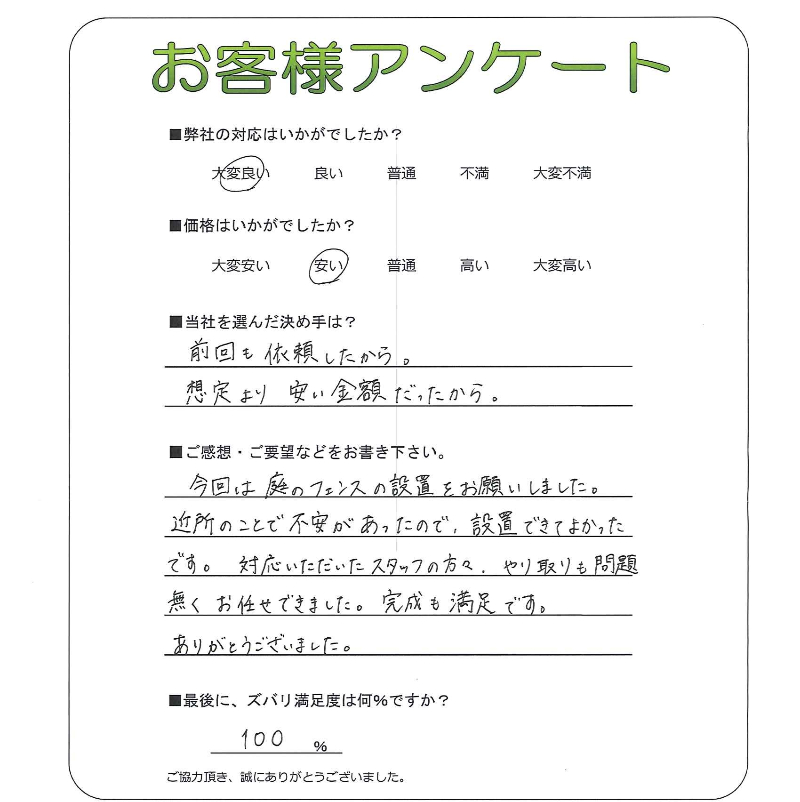 お客様アンケート
■弊社の対応はいかがでしたか？
大変良い 良い 普通 不満 大変不満
■価格はいかがでしたか？
大変安い 安い 普通 高い 大変高い
■当社を選んだ決め手は？
前回も依頼したから。
想定より 安い金額だったから。
■ご感想・ご要望などをお書き下さい。
今回は庭のフェンスの設置をお願いしました。
近所のことで不安があったので、設置できてよかった
です。 対応いただいたスタッフの方々、やり取りも問題
無く お任せできました。完成も満足です。
ありがとうございました。
■最後に、ズバリ満足度は何％ですか？
100 ％
ご協力頂き、誠にありがとうございました。